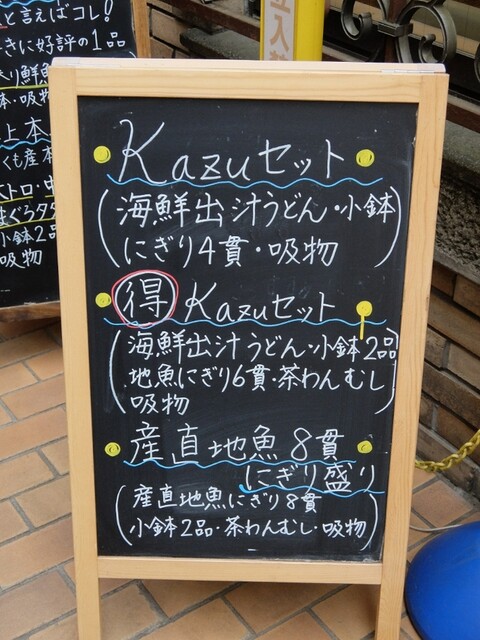 と言えばコレ!
きに好評の1品
り鮮魚
本・吸物
上本
くも産本
ストロ・中
まぐろタタ
小鉢2品
吸物
Kazuセット
(海鮮出汁うどん・小鉢
にぎり4貫・吸物)
得 Kazuセット
(海鮮出汁うどん・小鉢2品
地魚にぎり6貫・茶わんむし
吸物)
産直地魚8貫
にぎり盛り
(産直地魚にぎり8貫
小鉢2品・茶わんむし・吸物)